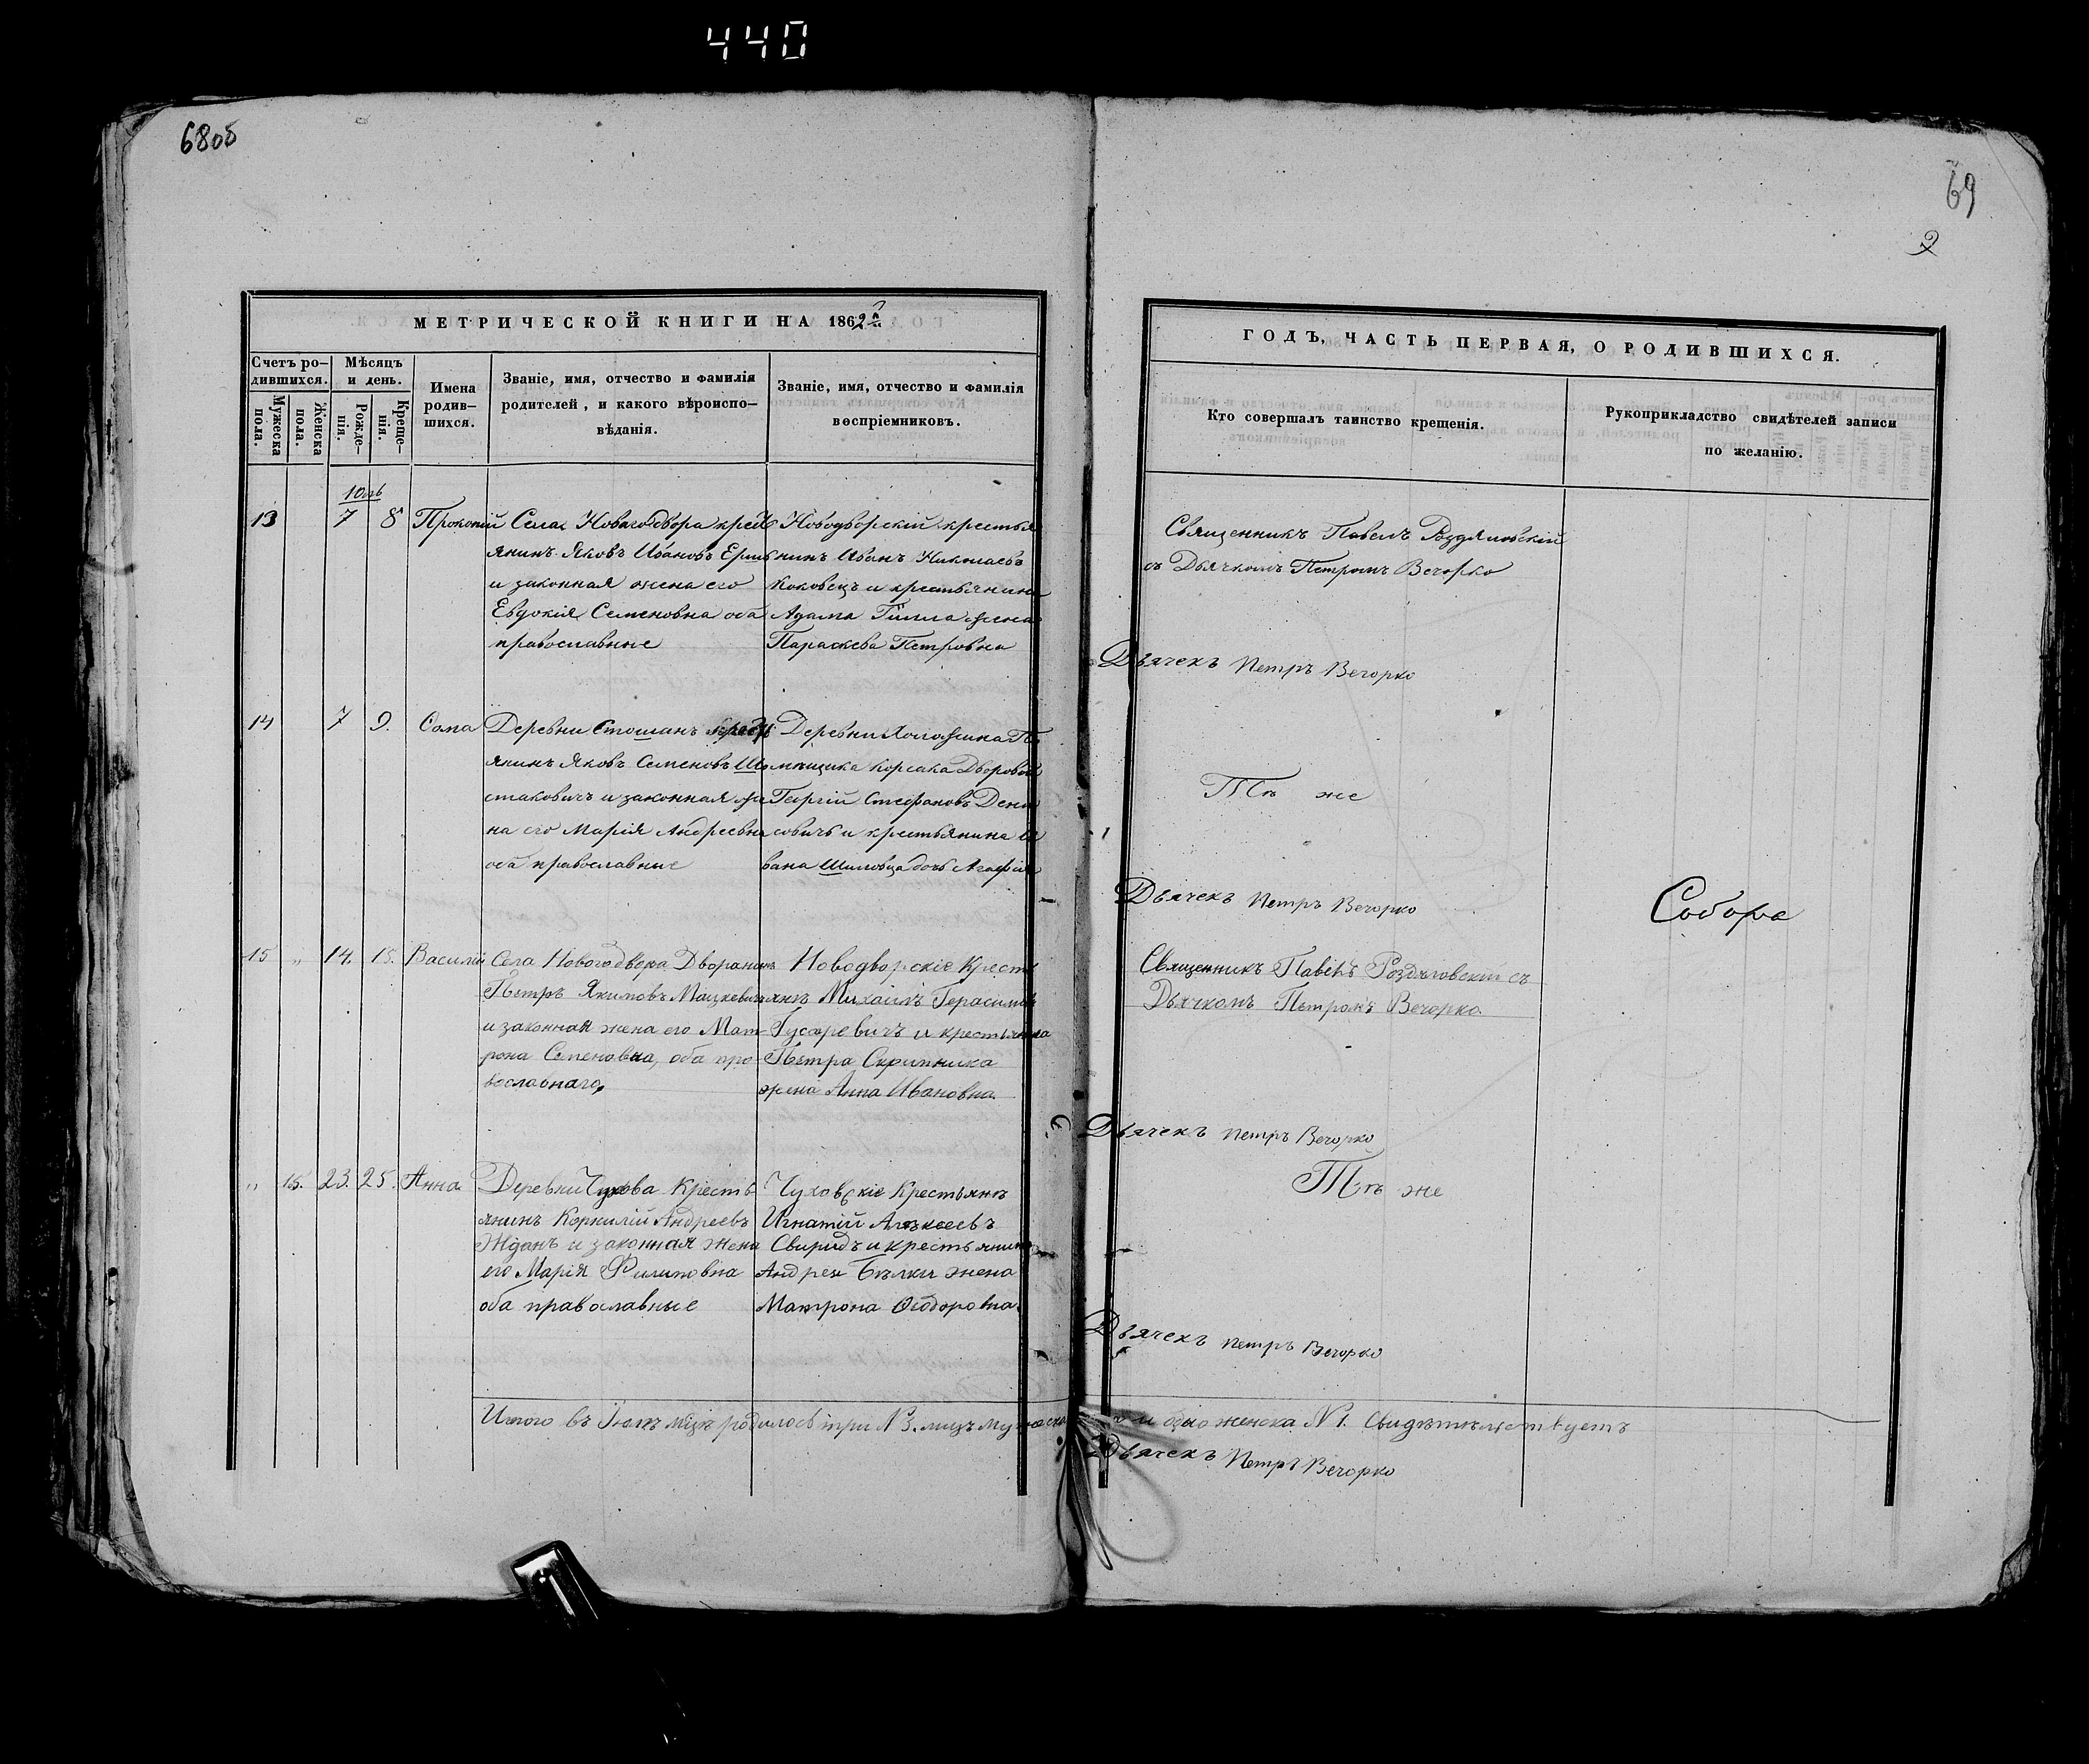 440
68об
69
2
МЕТРИЧЕСКОЙ КНИГИ НА 1862й
Счетъ ро-
дившихся.
Мужеска
пола.
Женска
пола.
Мѣсяцъ
и день.
Рожде-
нія.
Креще-
нія.
Имена
родив-
шихся.
Званіе, имя, отчество и фамилія
родителей, и какого вѣроиспо-
вѣданія.
Званіе, имя, отчество и фамилія
воспріемниковъ.
ГОДЪ, ЧАСТЬ ПЕРВАЯ, О РОДИВШИХСЯ.
Кто совершалъ таинство крещенія.
Рукоприкладство свидѣтелей записи
по желанію.
13
7 8
Прокопій
Села Новагодвора крест
янинъ Яковъ Ивановъ
и законная жена его
Евдокія Семеновна оба
православные
Новодворскій крестья
нинъ Иванъ Николаевъ
Коковецъ и крестьянина
Адама жена
Параскева Петровна
Священникъ Павелъ Роздяловскій
съ Дьячкомъ Петромъ Вечорко
Дьячекъ Петръ Вечорко
14
7 9.
Ѳома
Деревни Стошанъ
янинъ Яковъ Семеновъ Ше
стаковичъ и законная же
на его Марія Андреевна
оба православные
Деревни Холожина По
мѣщика Корсака Дворовой
Георгій Стефановъ Дени
совичъ и крестьянина И
вана Шиловца дочь Агафія
Тѣ же
Дьячекъ Петръ Вечорко
Собора
15 „ 14. 15.
Василій
Села Новогодвора Дворянинъ
Петръ Якимовъ Мацкевич
и законная жена его Мат-
рона Семеновна, оба пра-
вославнаго,
Новодворскіе Кресть
янѣ Михаилъ Герасимовъ
Гусаревичъ и крестьянина
Петра Скрипника
жена Анна Ивановна
Священникъ Павелъ Роздяловскій съ
Дьячкомъ Петромъ Вечорко.
Дьячекъ Петръ Вечорко
„ 15. 23. 25.
Анна
Деревни Чухова Кресть
янинъ Корнилій Андреевъ
Жданъ и законная жена
его Марія Филиповна
оба православные
Чуховскіе Крестьянѣ
Игнатій Алексеевъ
Свиридъ и крестьянина
Андрея Бѣлки жена
Матрона Ѳеодоровна.
Тѣ же
Дьячекъ Петръ Вечорко
Итого въ Іюлѣ мцѣ родилось три №3. лицъ мужеска и одно женска №1. Свидѣтельствуетъ
Дьячекъ Петръ Вечорко